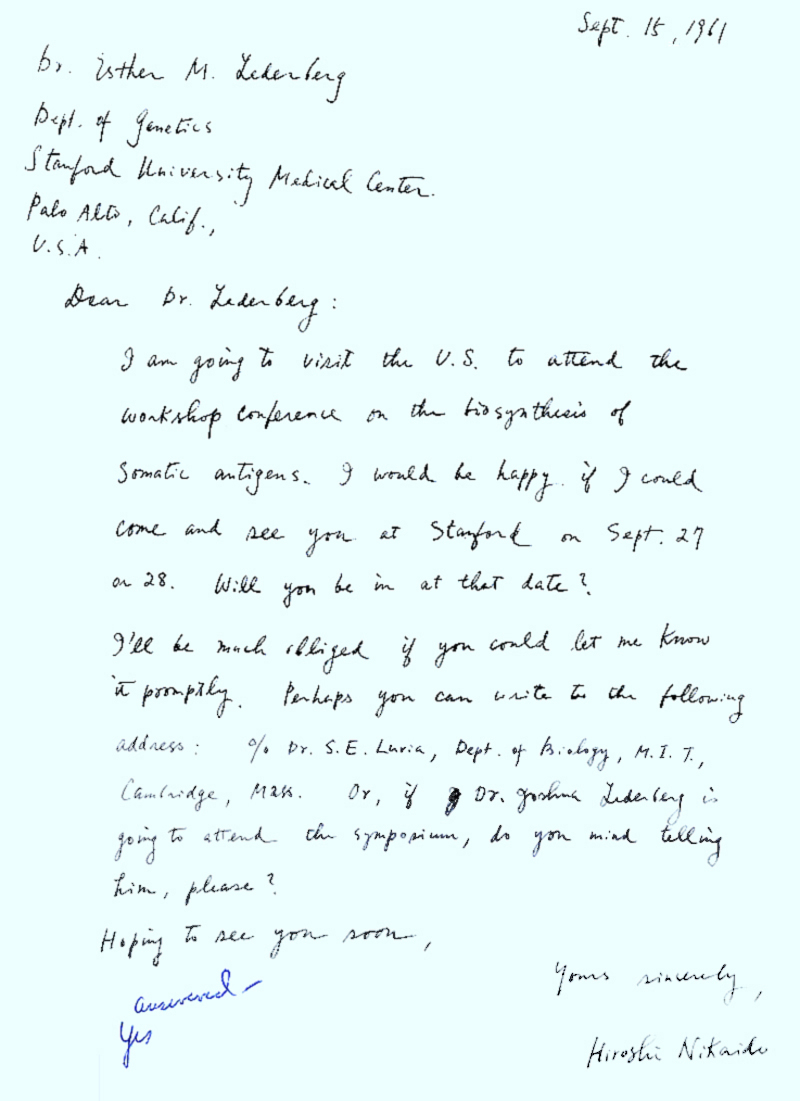 Sept. 15, 1961
Dr. Esther M. Lederberg
Dept. of Genetics
Stanford University Medical Center.
Palo Alto, Calif.,
U.S.A.
Dear Dr. Lederberg:
I am going to visit the U.S. to attend the
workshop conference on the biosynthesis of
somatic antigens. I would be happy if I could
come and see you at Stanford on Sept. 27
or 28. Will you be in at that date?
I'll be much obliged if you could let me know
it promptly. Perhaps you can write to the following
address: c/o Dr. S.E. Luria, Dept. of Biology, M.I.T.,
Cambridge, Mass. Or, if Dr. Joshua Lederberg is
going to attend the symposium, do you mind telling
him, please?
Hoping to see you soon,
Yours sincerely,
Hiroshi Nikaido
answered –
Yes